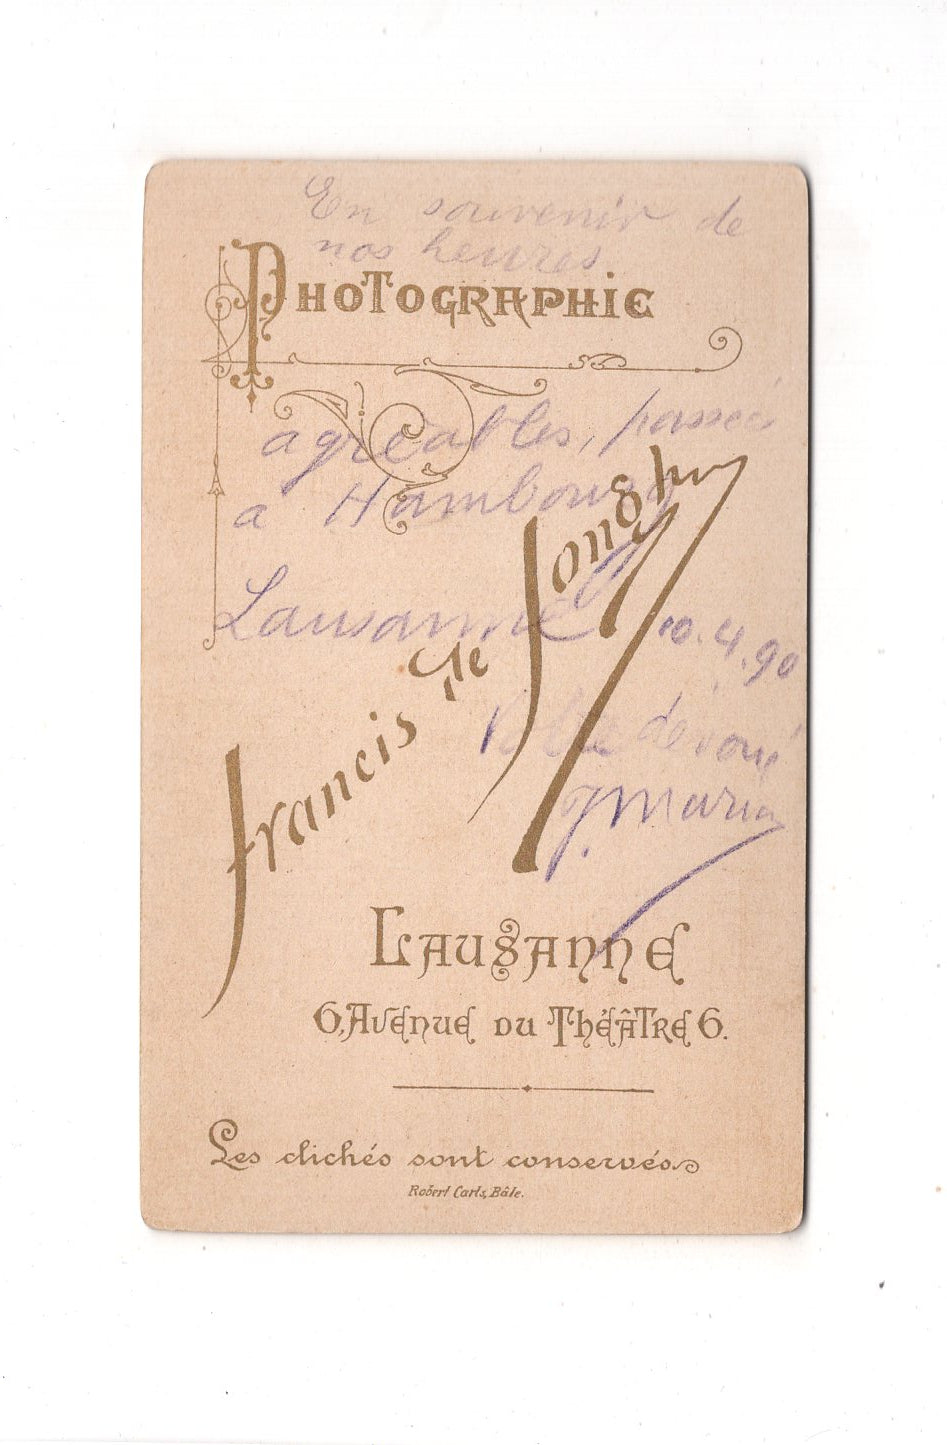 En souvenir de
nos heures
PHOTOGRAPHIE
agréables, passées
a Hambourg
Lausanne 10.4.90
Francis de Jongh
Votre dévoué
J. Marin
LAUSANNE
6, AVENUE DU THÉÂTRE 6.
Les clichés sont conservés
Robert Carls, Bâle.